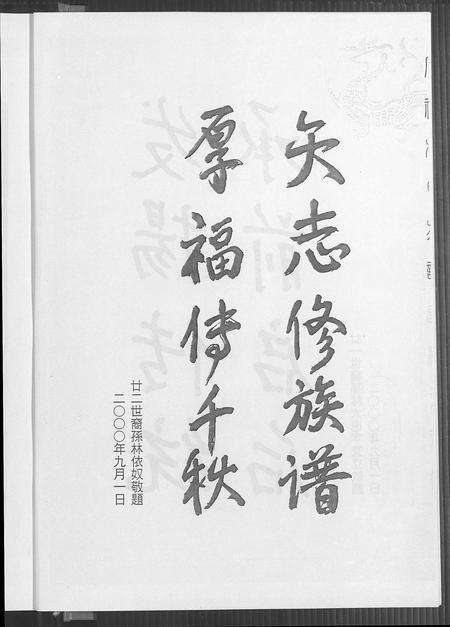 矢志修族谱
厚福传千秋
廿二世裔孫林依奴敬題
二〇〇〇年九月一日